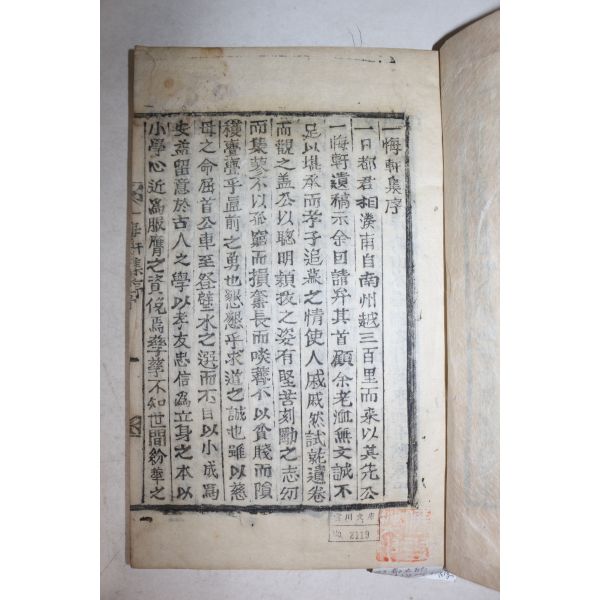 一悔軒集序
一日都君相濮甫自南州越三百里而來以其先公
一悔軒遺稿示余回請弁其首顧余老洫無文誠不
足以堪承而孝子追慕之情使人戚戚然試乾遺卷
而觀之盖公以聰明穎拔之姿有堅苦刻勵之志幼
而集蓼不以孤窮而損奮長而啖虀不以貧賤而隕
穫亹亹乎直前之勇也懇懇乎求道之誠也雖以慈
母之命屈首公車至登璧水之選而不自以小成爲
安益留意於古人之學以孝友忠信爲立身之本以
小學心近爲服膺之資俛焉孶孶不知世間紛華之
一悔軒集序
川文庫
No. 2119